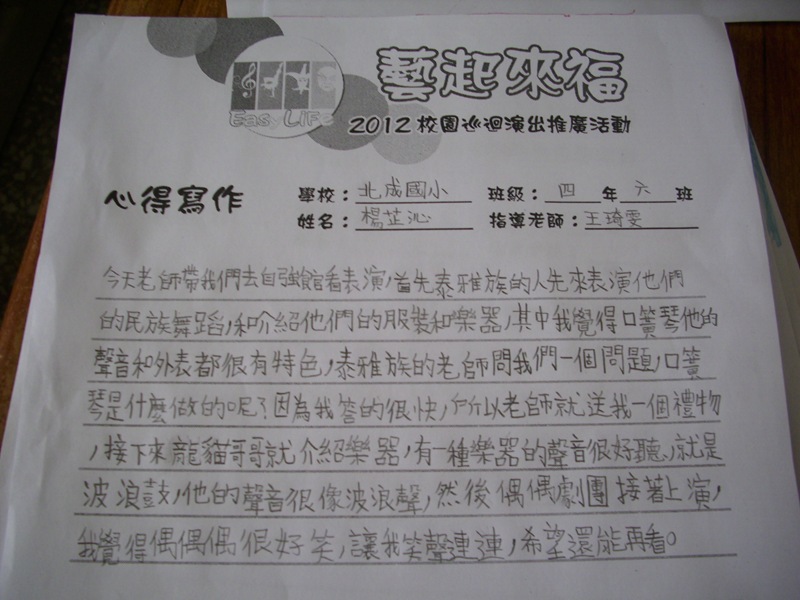 Easy LiFe
藝起來福
2012校園巡迴演出推廣活動
心得寫作
學校：北成國小 班級：四年六班
姓名：楊芷沁 指導老師：王琦雯
今天老師帶我們去自強館看表演，首先泰雅族的人先來表演他們
的民族舞蹈，和介紹他們的服裝和樂器，其中我覺得口簧琴他的
聲音和外表都很有特色，泰雅族的老師問我們一個問題，口簧
琴是什麼做的呢？因為我答的很快，所以老師就送我一個禮物
，接下來龍貓哥哥就介紹樂器，有一種樂器的聲音很好聽、就是
波浪鼓，他的聲音很像波浪聲，然後偶偶劇團接著上演，
我覺得偶偶偶很好笑，讓我笑聲連連，希望還能再看。